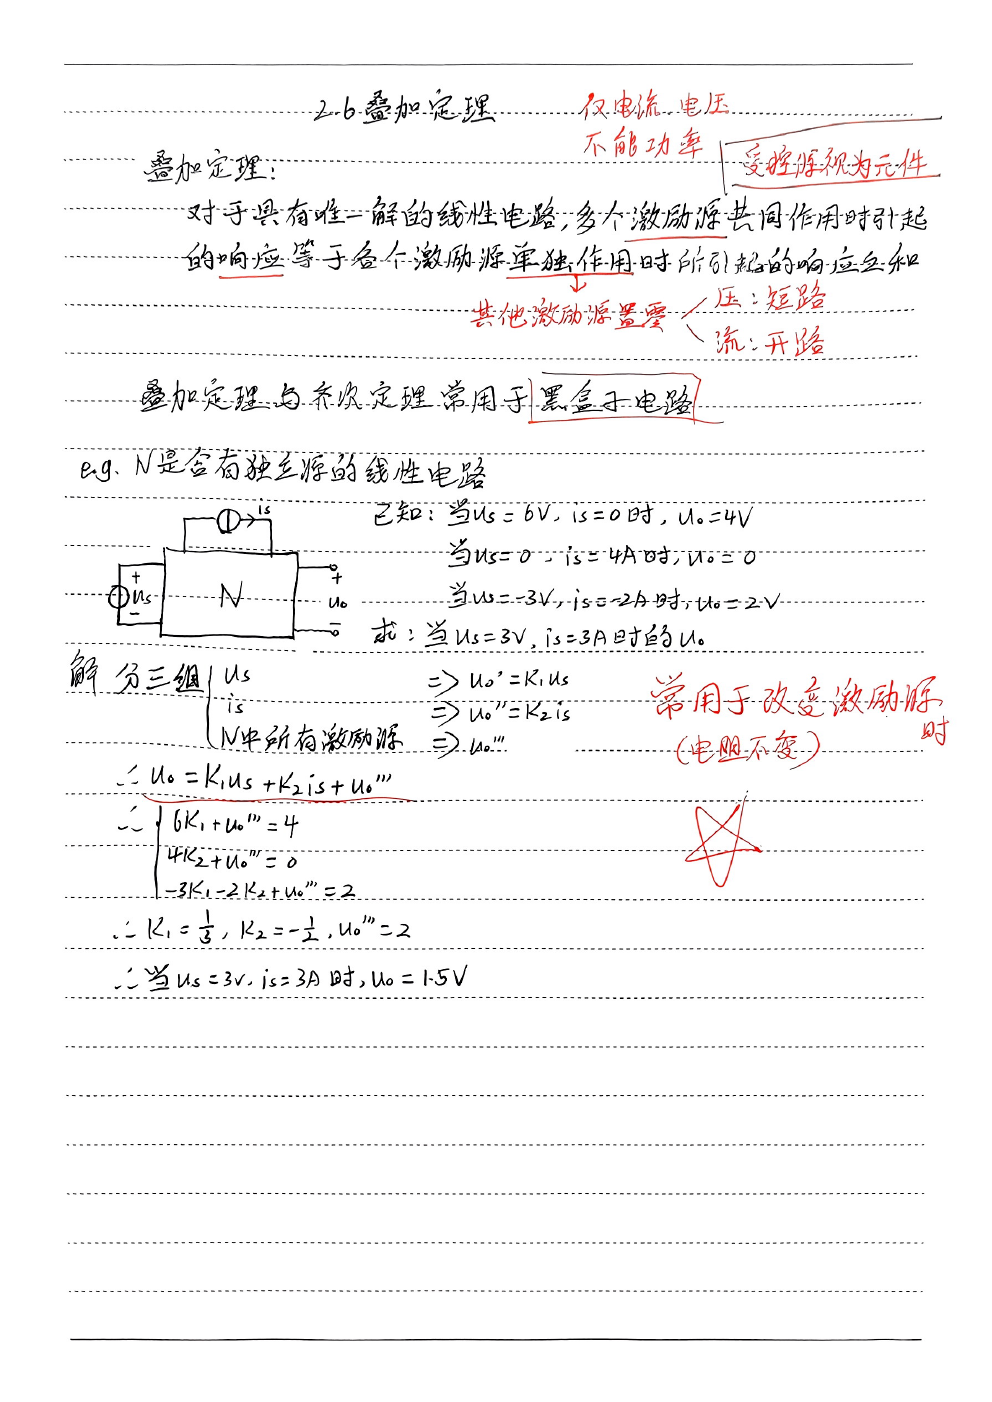 2.6 叠加定理
仅电流、电压
不能功率
受控源视为元件
叠加定理:
对于具有唯一解的线性电路,多个激励源共同作用时引起
的响应等于各个激励源单独作用时所引起的响应之和
其他激励源置零
压:短路
流:开路
叠加定理与齐次定理常用于黑盒子电路
e.g. N是含有独立源的线性电路
is
+
us
-
N
+
uo
-
已知: 当us=6V, is=0时, uo=4V
当us=0, is=4A时, uo=0
当us=-3V, is=-2A时, uo=2V
求: 当us=3V, is=3A时的uo
解 分三组
us => uo'=K1us
is => uo''=K2is
N中所有激励源 => uo'''
常用于改变激励源
时
(电阻不变)
∴ uo=K1us+K2is+uo'''
∴ 6K1+uo'''=4
4K2+uo'''=0
-3K1-2K2+uo'''=2
∴ K1=1/3, K2=-1/2, uo'''=2
∴当us=3V, is=3A时, uo=1.5V